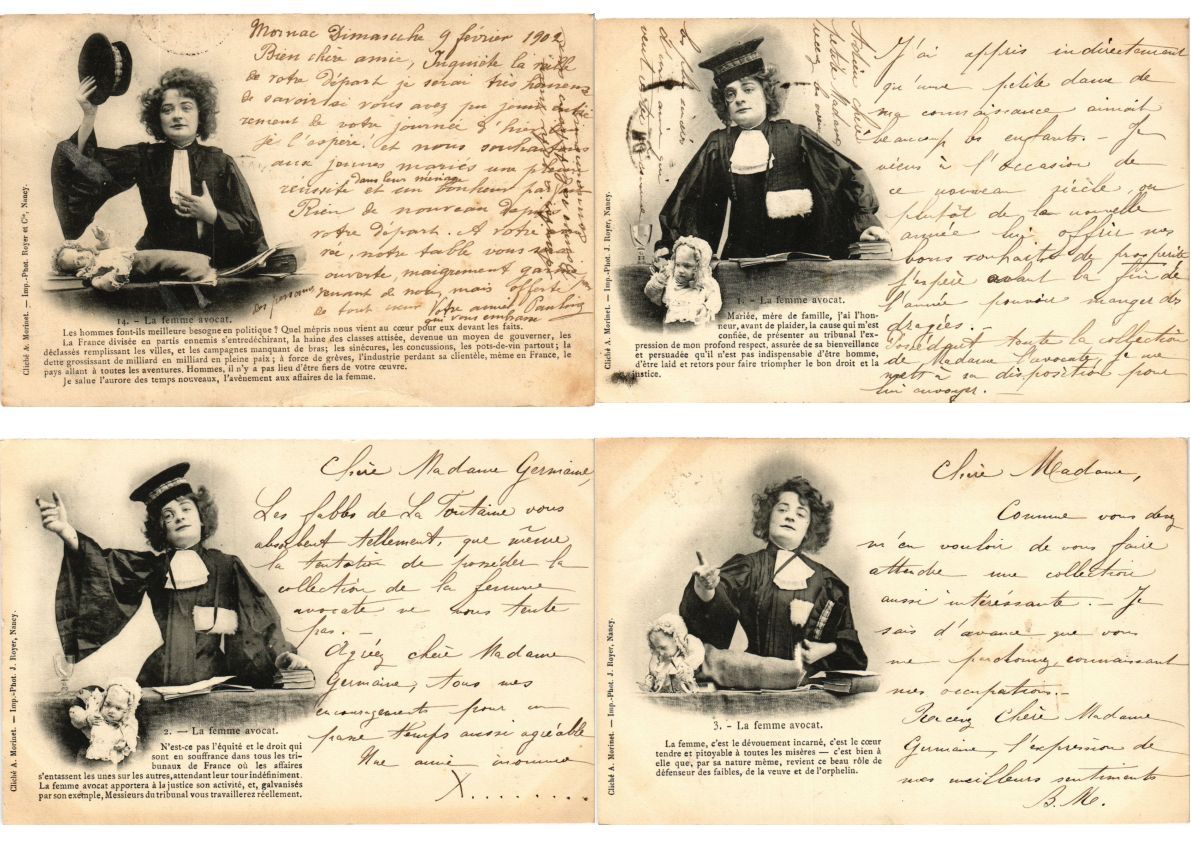 Mornac Dimanche 9 février 1902
Bien chère amie, Inquiète la veille
de votre départ je serai très heureuse
de savoir si vous avez pu jouir entiè
rement de votre journée d'hier
je l'espère, et nous souhaitons
aux jeunes mariés une pleine
réussite et un bonheur
dans leur ménage
Rien de nouveau depuis
votre départ. A votre
notre table vous sera
ouverte, maigrement
de nous, mais offerte
de tout cœur Votre amie Pauline
qui vous embrasse
Cliché A. Morinet. — Imp.-Phot. Royer et Cie, Nancy.
14. - La femme avocat.
Les hommes font-ils meilleure besogne en politique ? Quel mépris nous vient au cœur pour eux devant les faits.
La France divisée en partis ennemis s'entredéchirant, la haine des classes attisée, devenue un moyen de gouverner, les
déclassés remplissant les villes, et les campagnes manquant de bras; les sinécures, les concussions, les pots-de-vin partout; la
dette grossissant de milliard en milliard en pleine paix; à force de grèves, l'industrie perdant sa clientèle, même en France, le
pays allant à toutes les aventures. Hommes, il n'y a pas lieu d'être fiers de votre œuvre.
Je salue l'aurore des temps nouveaux, l'avènement aux affaires de la femme.
J'ai appris indirectement
qu'une petite dame de
ma connaissance aimait
beaucoup les enfants. - Je
viens à l'occasion de
ce nouveau siècle, ou
plutôt de la nouvelle
année lui offrir mes
bons souhaits de prospérité
j'espère avant la fin de
l'année pouvoir manger des
dragées. -
Possédant toute la collection
de Madame l'avocate, je me
mets à sa disposition pour
lui envoyer. -
petite Madame
Cliché A. Morinet. — Imp.-Phot. J. Royer, Nancy.
1. - La femme avocat.
Mariée, mère de famille, j'ai l'hon-
neur, avant de plaider, la cause qui m'est
confiée, de présenter au tribunal l'ex-
pression de mon profond respect, assurée de sa bienveillance
et persuadée qu'il n'est pas indispensable d'être homme,
d'être laid et retors pour faire triompher le bon droit et la
justice.
Chère Madame Germaine,
Les fables de La Fontaine vous
absorbent tellement, que même
la tentation de posséder la
collection de la femme
avocate ne vous tente
pas. -
Agréez chère Madame
Germaine, tous mes
encouragements pour un
passe temps aussi agréable
Une amie inconnue
X........
Cliché A. Morinet. — Imp.-Phot. J. Royer, Nancy.
2. — La femme avocat.
N'est-ce pas l'équité et le droit qui
sont en souffrance dans tous les tri-
bunaux de France où les affaires
s'entassent les unes sur les autres, attendant leur tour indéfiniment.
La femme avocat apportera à la justice son activité, et, galvanisés
par son exemple, Messieurs du tribunal vous travaillerez réellement.
Chère Madame,
Comme vous devez
m'en vouloir de vous faire
attendre une collection
aussi intéressante. - Je
sais d'avance que vous
me pardonnez, connaissant
mes occupations. -
Recevez Chère Madame
Germaine, l'expression de
mes meilleurs sentiments
B. M.
Cliché A. Morinet. — Imp.-Phot. J. Royer, Nancy.
3. - La femme avocat.
La femme, c'est le dévouement incarné, c'est le cœur
tendre et pitoyable à toutes les misères — c'est bien à
elle que, par sa nature même, revient ce beau rôle de
défenseur des faibles, de la veuve et de l'orphelin.